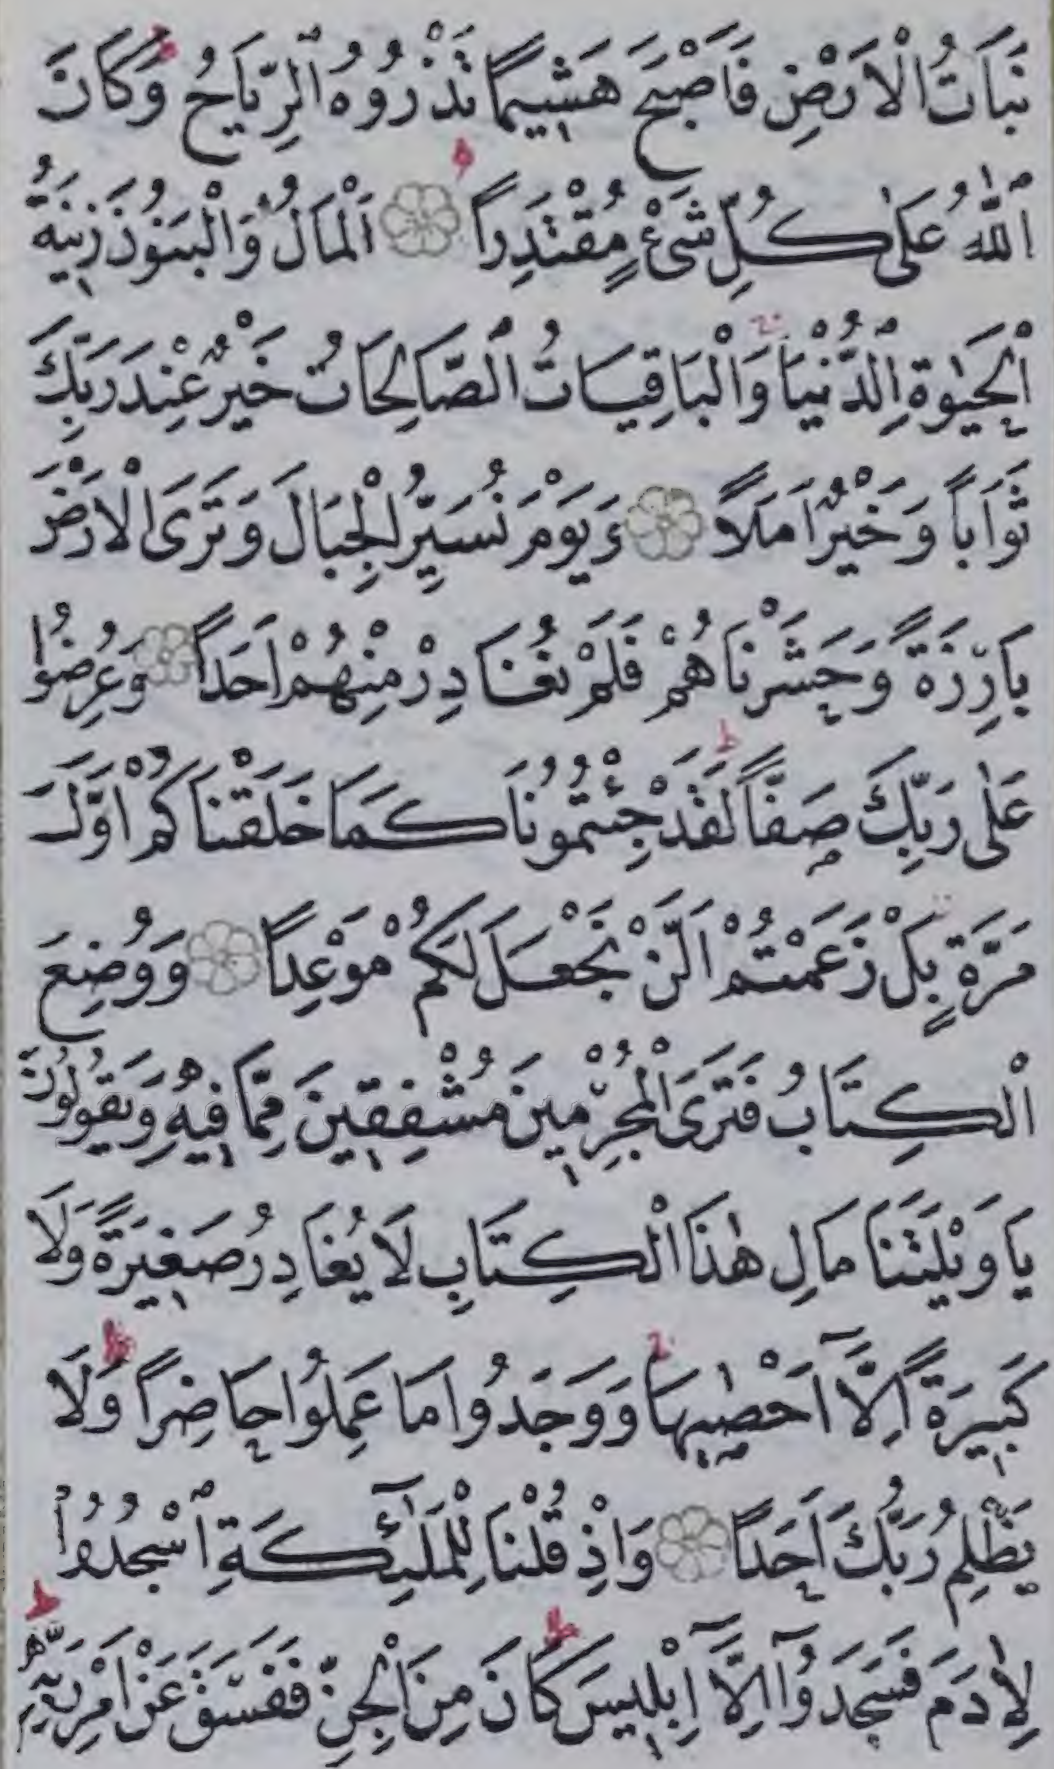 نَبَاتُ الْاَرْضِ فَاَصْبَحَ هَشٖيمًا تَذْرُوهُ الرِّيَاحُ وَكَانَ
اللّٰهُ عَلٰى كُلِّ شَیْءٍ مُقْتَدِرًا اَلْمَالُ وَالْبَنُونَ زٖينَةُ
الْحَيٰوةِ الدُّنْيَا وَالْبَاقِيَاتُ الصَّالِحَاتُ خَيْرٌ عِنْدَ رَبِّكَ
ثَوَابًا وَخَيْرٌ اَمَلًا وَيَوْمَ نُسَيِّرُ الْجِبَالَ وَتَرَى الْاَرْضَ
بَارِزَةً وَحَشَرْنَاهُمْ فَلَمْ نُغَادِرْ مِنْهُمْ اَحَدًا وَعُرِضُوا
عَلٰى رَبِّكَ صَفًّا لَقَدْ جِئْتُمُونَا كَمَا خَلَقْنَاكُمْ اَوَّلَ
مَرَّةٍ بَلْ زَعَمْتُمْ اَلَّنْ نَجْعَلَ لَكُمْ مَوْعِدًا وَوُضِعَ
الْكِتَابُ فَتَرَى الْمُجْرِمٖينَ مُشْفِقٖينَ مِمَّا فٖيهِ وَيَقُولُونَ
يَا وَيْلَتَنَا مَالِ هٰذَا الْكِتَابِ لَا يُغَادِرُ صَغٖيرَةً وَلَا
كَبٖيرَةً اِلَّٓا اَحْصٰيهَا وَوَجَدُوا مَا عَمِلُوا حَاضِرًا وَلَا
يَظْلِمُ رَبُّكَ اَحَدًا وَاِذْ قُلْنَا لِلْمَلٰٓئِكَةِ اسْجُدُوا
لِاٰدَمَ فَسَجَدُٓوا اِلَّٓا اِبْلٖيسَ كَانَ مِنَ الْجِنِّ فَفَسَقَ عَنْ اَمْرِ رَبِّهٖ